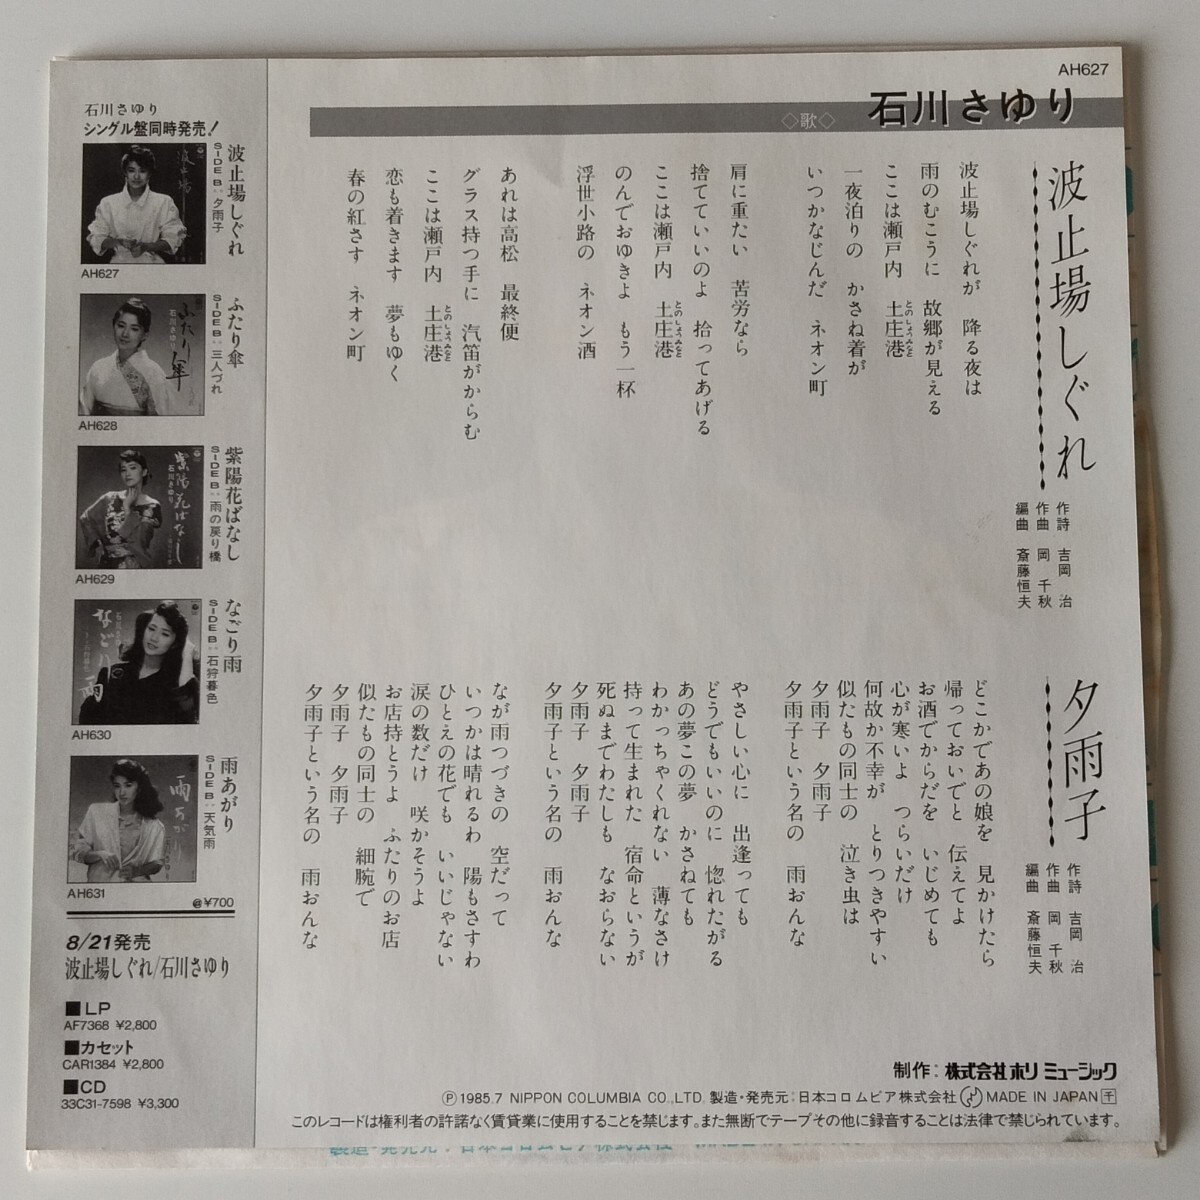 AH627
◇歌◇ 石川さゆり
波止場しぐれ
作詩 吉岡 治
作曲 岡 千秋
編曲 斎藤恒夫
波止場しぐれが 降る夜は
雨のむこうに 故郷が見える
ここは瀬戸内 土庄港
とのしょうみなと
一夜泊りの かさね着が
いつかなじんだ ネオン町
肩に重たい 苦労なら
捨てていいのよ 拾ってあげる
ここは瀬戸内 土庄港
とのしょうみなと
のんでおゆきよ もう一杯
浮世小路の ネオン酒
あれは高松 最終便
グラス持つ手に 汽笛がからむ
ここは瀬戸内 土庄港
とのしょうみなと
恋も着きます 夢もゆく
春の紅さす ネオン町
夕雨子
作詩 吉岡 治
作曲 岡 千秋
編曲 斎藤恒夫
どこかであの娘を 見かけたら
帰っておいでと 伝えてよ
お酒でからだを いじめても
心が寒いよ つらいだけ
何故か不幸が とりつきやすい
似たもの同士の 泣き虫は
夕雨子 夕雨子
夕雨子という名の 雨おんな
やさしい心に 出逢っても
どうでもいいのに 惚れたがる
あの夢この夢 かさねても
わかっちゃくれない 薄なさけ
持って生まれた 宿命というが
死ぬまでわたしも なおらない
夕雨子 夕雨子
夕雨子という名の 雨おんな
なが雨つづきの 空だって
いつかは晴れるわ 陽もさすわ
ひとえの花でも いいじゃない
涙の数だけ 咲かそうよ
お店持とうよ ふたりのお店
似たもの同士の 細腕で
夕雨子 夕雨子
夕雨子という名の 雨おんな
石川さゆり
シングル盤同時発売!
波止場しぐれ
SIDE B:夕雨子
AH627
ふたり傘
SIDE B:三人づれ
AH628
紫陽花ばなし
SIDE B:雨の戻り橋
AH629
なごり雨
SIDE B:石狩暮色
AH630
雨あがり
SIDE B:天気雨
AH631
@¥700
8/21発売
波止場しぐれ/石川さゆり
■LP
AF7368 ¥2,800
■カセット
CAR1384 ¥2,800
■CD
33C31-7598 ¥3,300
制作:株式会社ホリ ミュージック
Ⓟ1985.7 NIPPON COLUMBIA CO.,LTD. 製造・発売元:日本コロムビア株式会社 MADE IN JAPAN 千
このレコードは権利者の許諾なく賃貸業に使用することを禁じます。また無断でテープその他に録音することは法律で禁じられています。